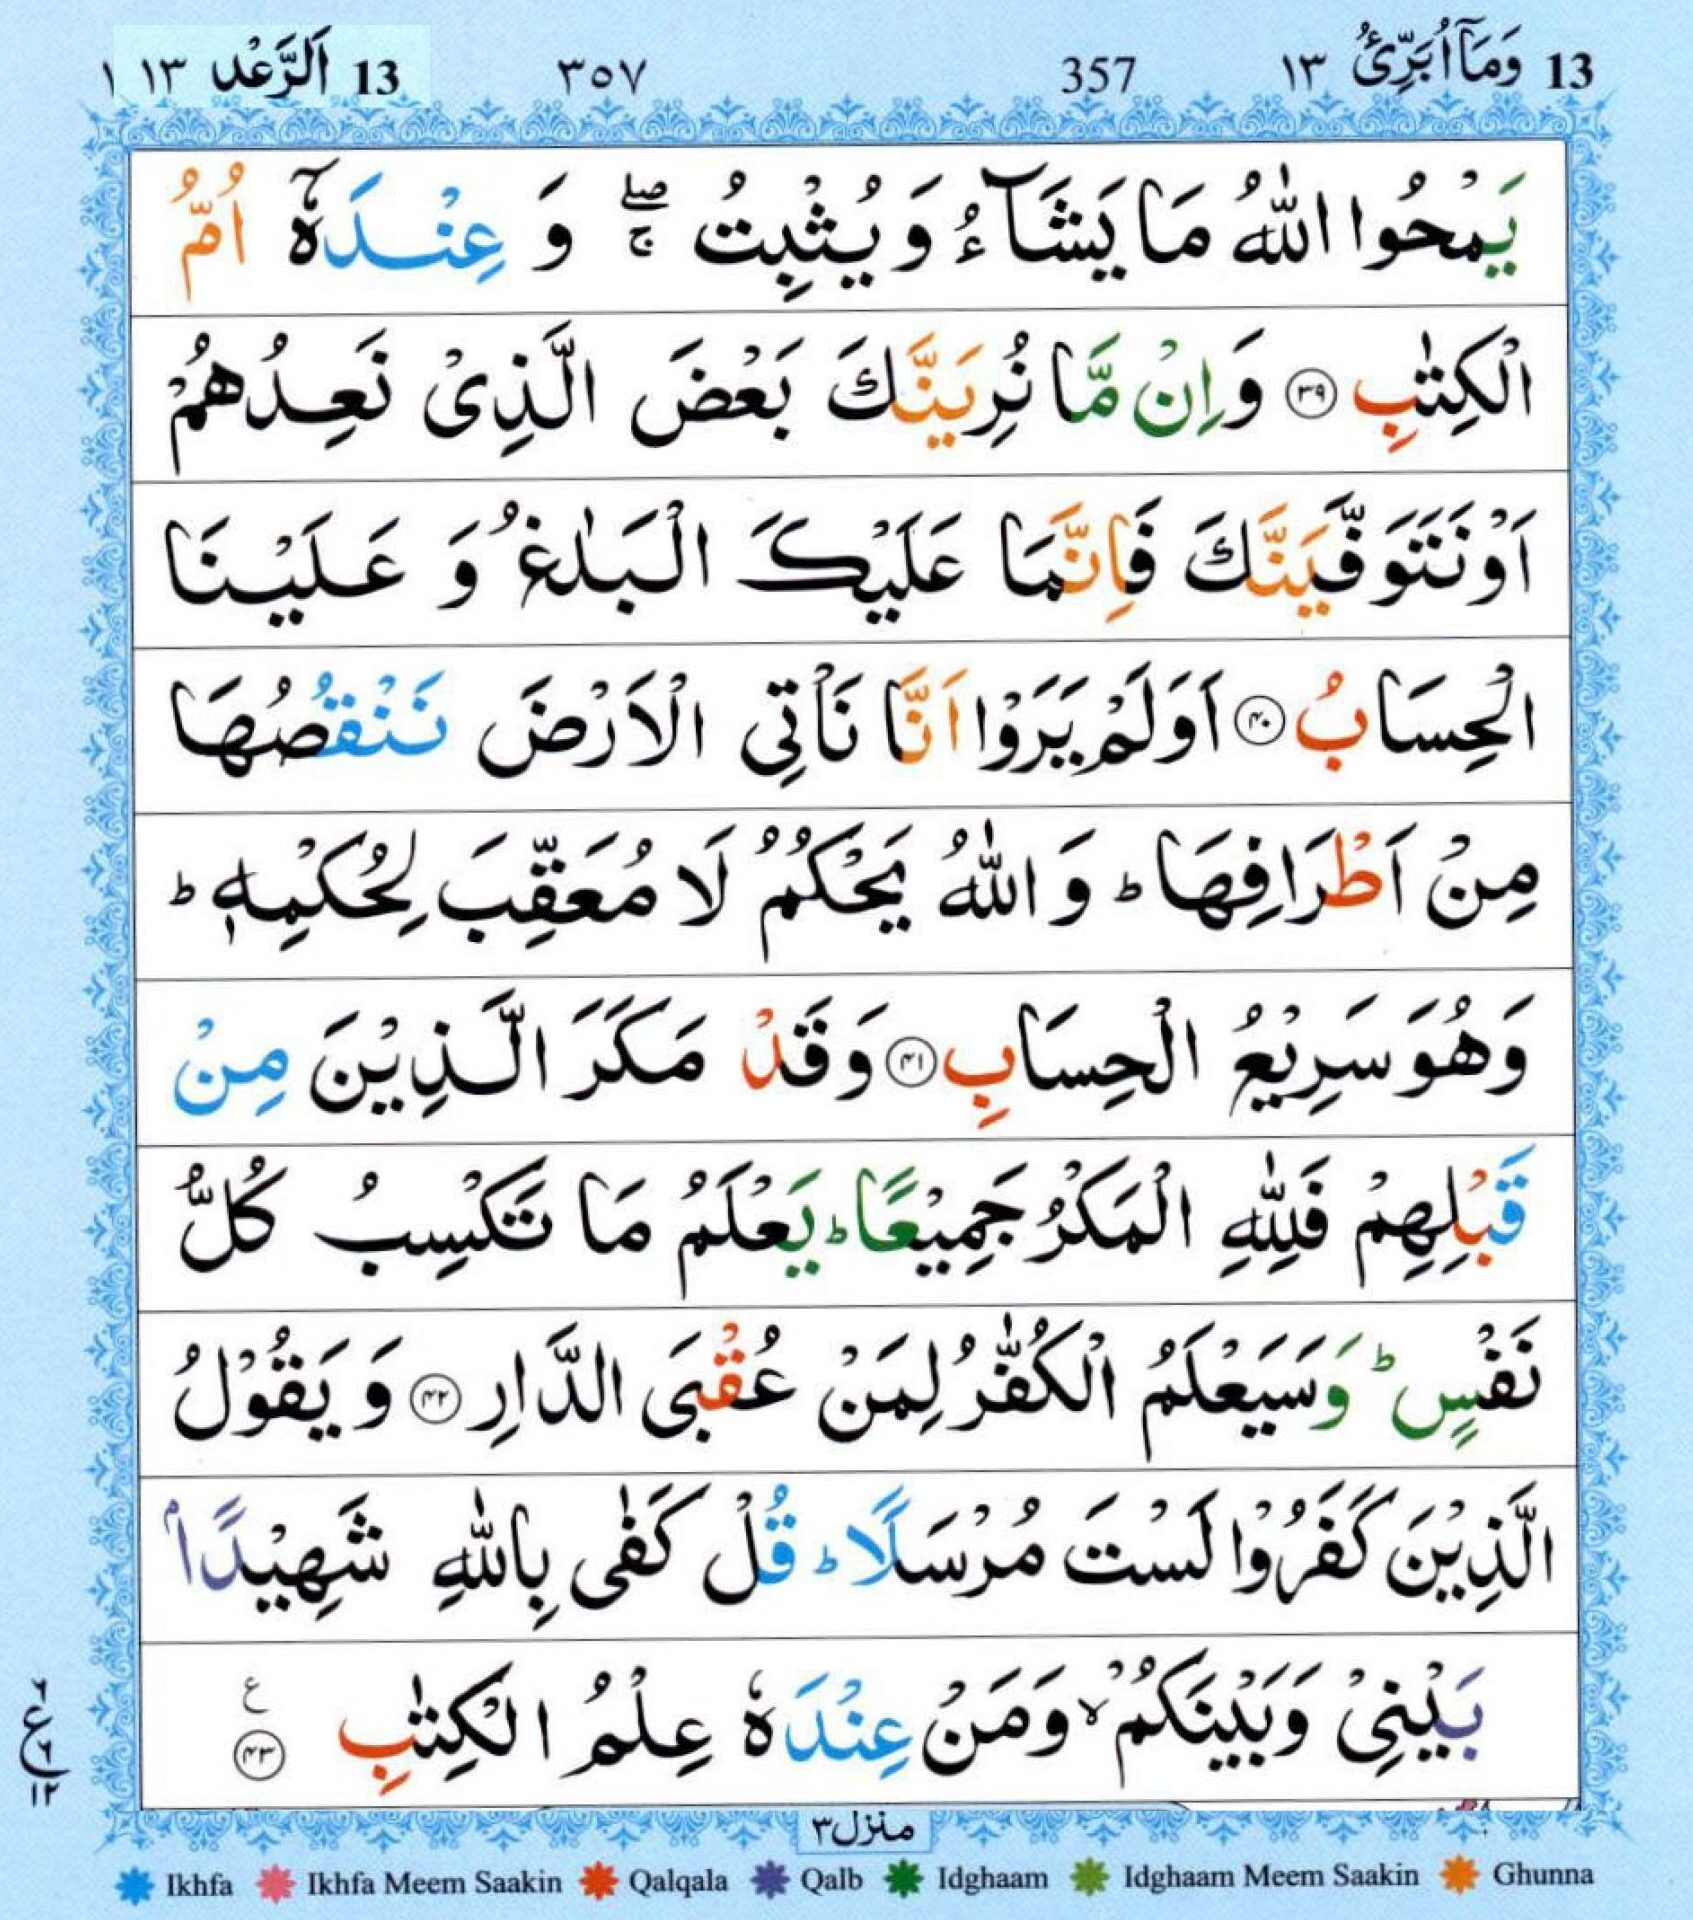 13 وَمَاۤ اُبَرِّئُ ١٣ 357 ٣٥٧ 13 اَلرَّعْد ١٣ ١
يَمْحُوا اللّٰهُ مَا يَشَآءُ وَ يُثْبِتُ ۖۚ وَ عِنْدَهٗۤ اُمُّ
الْكِتٰبِ ٣٩ وَ اِنْ مَّا نُرِيَنَّكَ بَعْضَ الَّذِىْ نَعِدُهُمْ
اَوْ نَتَوَفَّيَنَّكَ فَاِنَّمَا عَلَيْكَ الْبَلٰغُ وَ عَلَيْنَا
الْحِسَابُ ٤٠ اَوَلَمْ يَرَوْا اَنَّا نَاْتِى الْاَرْضَ نَنْقُصُهَا
مِنْ اَطْرَافِهَا ؕ وَ اللّٰهُ يَحْكُمُ لَا مُعَقِّبَ لِحُكْمِهٖ ؕ
وَهُوَ سَرِيْعُ الْحِسَابِ ٤١ وَقَدْ مَكَرَ الَّذِيْنَ مِنْ
قَبْلِهِمْ فَلِلّٰهِ الْمَكْرُ جَمِيْعًا ؕ يَعْلَمُ مَا تَكْسِبُ كُلُّ
نَفْسٍ ؕ وَسَيَعْلَمُ الْكُفّٰرُ لِمَنْ عُقْبَى الدَّارِ ٤٢ وَ يَقُوْلُ
الَّذِيْنَ كَفَرُوْا لَسْتَ مُرْسَلًا ؕ قُلْ كَفٰى بِاللّٰهِ شَهِيْدًۢا
بَيْنِىْ وَبَيْنَكُمْ ۙ وَمَنْ عِنْدَهٗ عِلْمُ الْكِتٰبِ ٤٣ ع
٦ ع ٦ ١٢
منزل ٣
Ikhfa Ikhfa Meem Saakin Qalqala Qalb Idghaam Idghaam Meem Saakin Ghunna